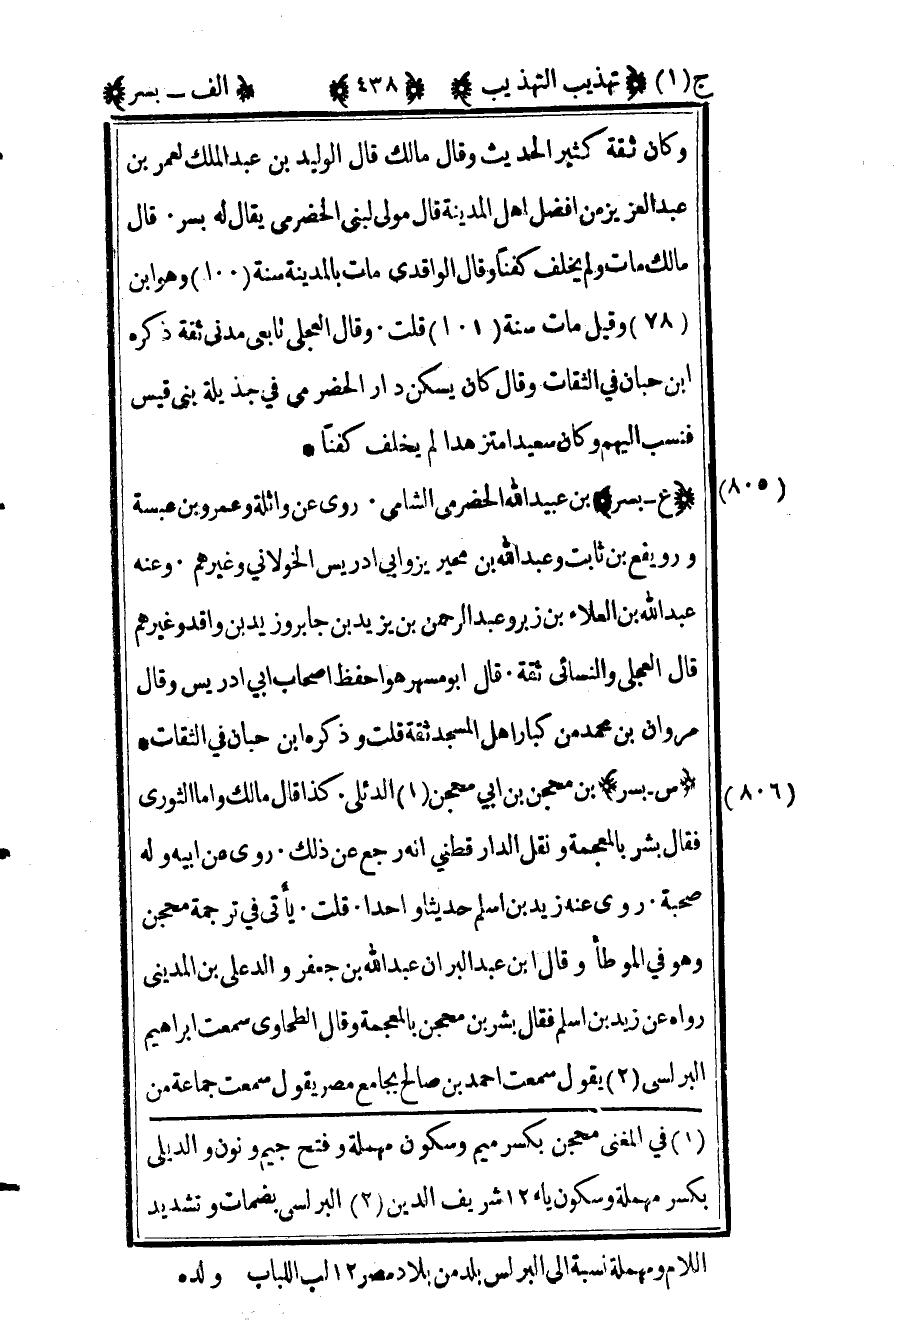 ج(١) ﴿تهذيب التهذيب﴾ ﴿٤٣٨﴾ ﴿الف ـ بسر﴾
وكان ثقة كثير الحديث وقال مالك قال الوليد بن عبد الملك لعمر بن
عبد العزيز من افضل اهل المدينة قال مولى لبنى الحضرمى يقال له بسر · قال
مالك مات ولم يخلف كفنًا وقال الواقدى مات بالمدينة سنة (١٠٠) وهو ابن
(٧٨) وقيل مات سنة (١٠١) قلت · وقال العجلى تابعى مدنى ثقة ذكره
ابن حبان في الثقات وقال كان يسكن دار الحضرمى في جذيلة بنى قيس
فنسب اليهم وكان سعيدا متزهدا لم يخلف كفنًا •
(٨٠٥) ﴿غ ـ بسر﴾ بن عبيد الله الحضرمى الشامى · روى عن واثلة وعمرو بن عبسة
و رويفع بن ثابت وعبد الله بن محيريز وابي ادريس الخولاني وغيرهم · وعنه
عبد الله بن العلاء بن زبر وعبد الرحمن بن يزيد بن جابر وزيد بن واقد وغيرهم
قال العجلى والنسائى ثقة · قال ابو مسهر هو احفظ اصحاب ابي ادريس وقال
مروان بن محمد من كبار اهل المسجد ثقة قلت و ذكره ابن حبان في الثقات •
(٨٠٦) ﴿س ـ بسر﴾ بن محجن بن ابي محجن (١) الدئلى · كذا قال مالك واما الثورى
فقال بشر بالمعجمة و نقل الدار قطني انه رجع عن ذلك · روى عن ابيه و له
صحبة · روى عنه زيد بن اسلم حديثا واحدا · قلت · يأتى في ترجمة محجن
وهو في الموطأ و قال ابن عبد البر ان عبد الله بن جعفر والد على بن المدينى
رواه عن زيد بن اسلم فقال بشر بن محجن بالمعجمة وقال الطحاوى سمعت ابراهيم
البرلسى (٢) يقول سمعت احمد بن صالح بجامع مصر يقول سمعت جماعة من
(١) في المغنى محجن بكسر ميم وسكون مهملة و فتح جيم و نون و الديلى
بكسر مهملة وسكون ياء ١٢ شريف الدين (٢) البرلسى بضمات و تشديد
اللام ومهملة نسبة الى البرلس بلد من بلاد مصر ١٢ لب اللباب ولده